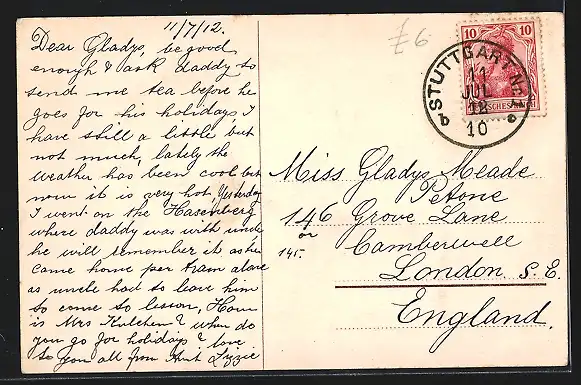 11/7/12.
Dear Gladys, be good
enough & ask daddy to
send me tea before he
goes for his holidays, I
have still a little but
not much, lately the
weather has been cool but
now it is very hot, Yesterday
I went on the Hasenberg
where daddy was with uncle
he will remember it,
came home per tram alone
as uncle had to leave him
to come to lesson, How
is Mrs ? when do
you go for holidays? love
to you all from Aunt Lizzie
£6
10 10
DEUTSCHES REICH
STUTTGART No.
11
JUL
12
10
b b
Miss Gladys Meade
Petone
146 Grove Lane
or
145- Camberwell
London S.E.
England.